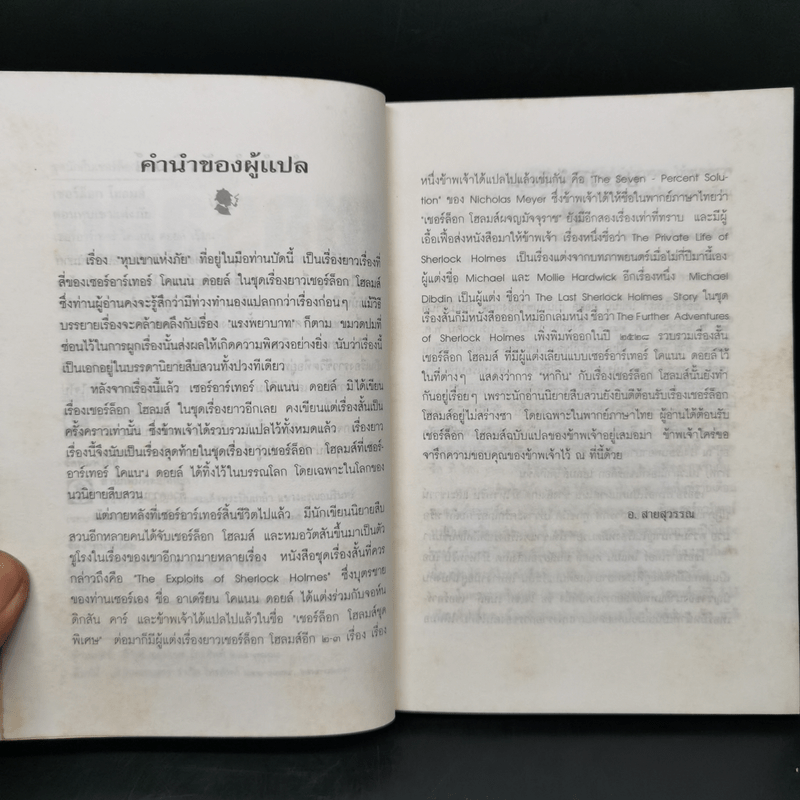 คำนำของผู้แปล
เรื่อง "หุบเขาแห่งภัย" ที่อยู่ในมือท่านบัดนี้ เป็นเรื่องยาวเรื่องที่
สี่ของเซอร์อาร์เทอร์ โคแนน ดอยล์ ในชุดเรื่องยาวเชอร์ล็อก โฮลมส์
ซึ่งท่านผู้อ่านคงจะรู้สึกว่ามีท่วงทำนองแปลกกว่าเรื่องก่อนๆ แม้วิธี
บรรยายเรื่องจะคล้ายคลึงกับเรื่อง "แรงพยาบาท" ก็ตาม ขมวดปมที่
ซ่อนไว้ในการผูกเรื่องนั้นส่งผลให้เกิดความพิศวงอย่างยิ่ง นับว่าเรื่องนี้
เป็นเอกอยู่ในบรรดานิยายสืบสวนทั้งปวงทีเดียว
หลังจากเรื่องนี้แล้ว เซอร์อาร์เทอร์ โคแนน ดอยล์ มิได้เขียน
เรื่องเชอร์ล็อก โฮลมส์ ในชุดเรื่องยาวอีกเลย คงเขียนแต่เรื่องสั้นเป็น
ครั้งคราวเท่านั้น ซึ่งข้าพเจ้าได้รวบรวมแปลไว้ทั้งหมดแล้ว เรื่องยาว
เรื่องนี้จึงนับเป็นเรื่องสุดท้ายในชุดเรื่องยาวเชอร์ล็อก โฮลมส์ที่เซอร์-
อาร์เทอร์ โคแนน ดอยล์ ได้ทิ้งไว้ในบรรณโลก โดยเฉพาะในโลกของ
นวนิยายสืบสวน
แต่ภายหลังที่เซอร์อาร์เทอร์สิ้นชีวิตไปแล้ว มีนักเขียนนิยายสืบ
สวนอีกหลายคนได้จับเชอร์ล็อก โฮลมส์ และหมอวัตสันขึ้นมาเป็นตัว
ชูโรงในเรื่องของเขาอีกมากมายหลายเรื่อง หนังสือชุดเรื่องสั้นที่ควร
กล่าวถึงคือ "The Exploits of Sherlock Holmes" ซึ่งบุตรชาย
ของท่านเซอร์เอง ชื่อ อาเดรียน โคแนน ดอยล์ ได้แต่งร่วมกับจอห์น
ดิกสัน คาร์ และข้าพเจ้าได้แปลไปแล้วในชื่อ "เชอร์ล็อก โฮลมส์ชุด
พิเศษ" ต่อมาก็มีผู้แต่งเรื่องยาวเชอร์ล็อก โฮลมส์อีก ๒-๓ เรื่อง เรื่อง
หนึ่งข้าพเจ้าได้แปลไปแล้วเช่นกัน คือ "The Seven - Percent Solu-
tion" ของ Nicholas Meyer ซึ่งข้าพเจ้าได้ให้ชื่อในพากย์ภาษาไทยว่า
"เชอร์ล็อก โฮลมส์ผจญมัจจุราช" ยังมีอีกสองเรื่องเท่าที่ทราบ และมีผู้
เอื้อเฟื้อส่งหนังสือมาให้ข้าพเจ้า เรื่องหนึ่งชื่อว่า The Private Life of
Sherlock Holmes เป็นเรื่องแต่งจากบทภาพยนตร์เมื่อไม่กี่ปีมานี้เอง
ผู้แต่งชื่อ Michael และ Mollie Hardwick อีกเรื่องหนึ่ง Michael
Dibdin เป็นผู้แต่ง ชื่อว่า The Last Sherlock Holmes Story ในชุด
เรื่องสั้นก็มีหนังสือออกใหม่อีกเล่มหนึ่ง ชื่อว่า The Further Adventures
of Sherlock Holmes เพิ่งพิมพ์ออกในปี ๒๕๒๘ รวบรวมเรื่องสั้น
เชอร์ล็อก โฮลมส์ ที่มีผู้แต่งเลียนแบบเซอร์อาร์เทอร์ โคแนน ดอยล์ไว้
ในที่ต่างๆ แสดงว่าการ "หากิน" กับเรื่องเชอร์ล็อก โฮลมส์นั้นยังทำ
กันอยู่เรื่อยๆ เพราะนักอ่านนิยายสืบสวนยังยินดีต้อนรับเรื่องเชอร์ล็อก
โฮลมส์อยู่ไม่สร่างซา โดยเฉพาะในพากย์ภาษาไทย ผู้อ่านได้ต้อนรับ
เชอร์ล็อก โฮลมส์ฉบับแปลของข้าพเจ้าอยู่เสมอมา ข้าพเจ้าใคร่ขอ
จารึกความขอบคุณของข้าพเจ้าไว้ ณ ที่นี้ด้วย
อ. สายสุวรรณ